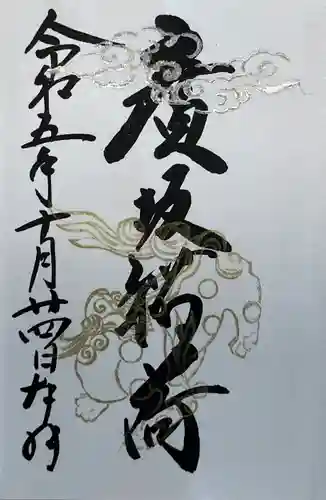 廣坂稲荷
令和五年十月廿四日